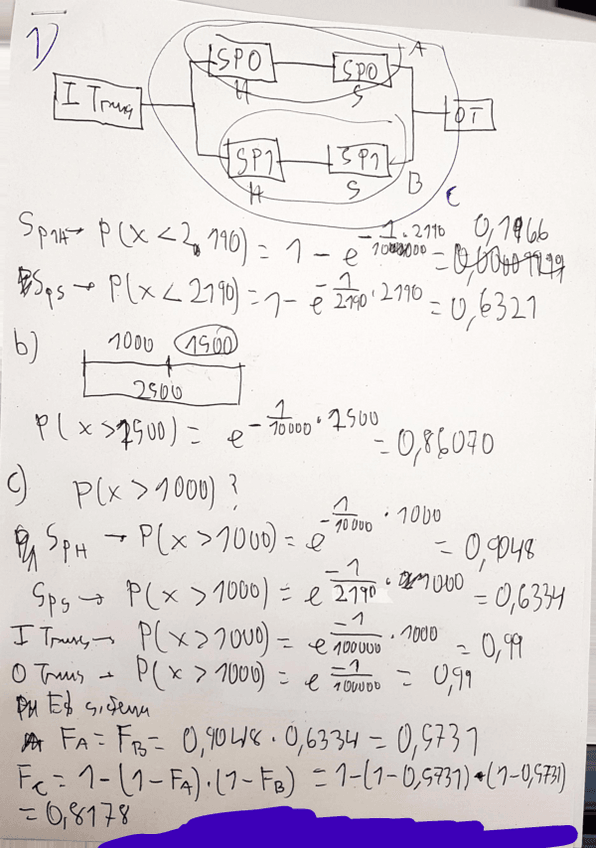 1)
SP0 SP0 A
H S
I Trans OT
SP1 SP1 B
H S C
SP1H → P(x < 2190) = 1 - e^{-\frac{1}{10000} \cdot 2190} = 0,1966
SPS → P(x < 2190) = 1 - e^{-\frac{1}{2190} \cdot 2190} = 0,6321
b)
1000 1500
2500
P(x > 1500) = e^{-\frac{1}{10000} \cdot 1500} = 0,86070
c) P(x > 1000)?
SPH → P(x > 1000) = e^{-\frac{1}{10000} \cdot 1000} = 0,9048
SPS → P(x > 1000) = e^{\frac{-1}{2190} \cdot 1000} = 0,6334
I Trans → P(x > 1000) = e^{\frac{-1}{100000} \cdot 1000} = 0,99
O Trans → P(x > 1000) = e^{\frac{-1}{100000}} = 0,99
sistema
FA = FB = 0,9048 · 0,6334 = 0,5731
FC = 1-(1-FA)·(1-FB) = 1-(1-0,5731)·(1-0,5731)
= 0,8178